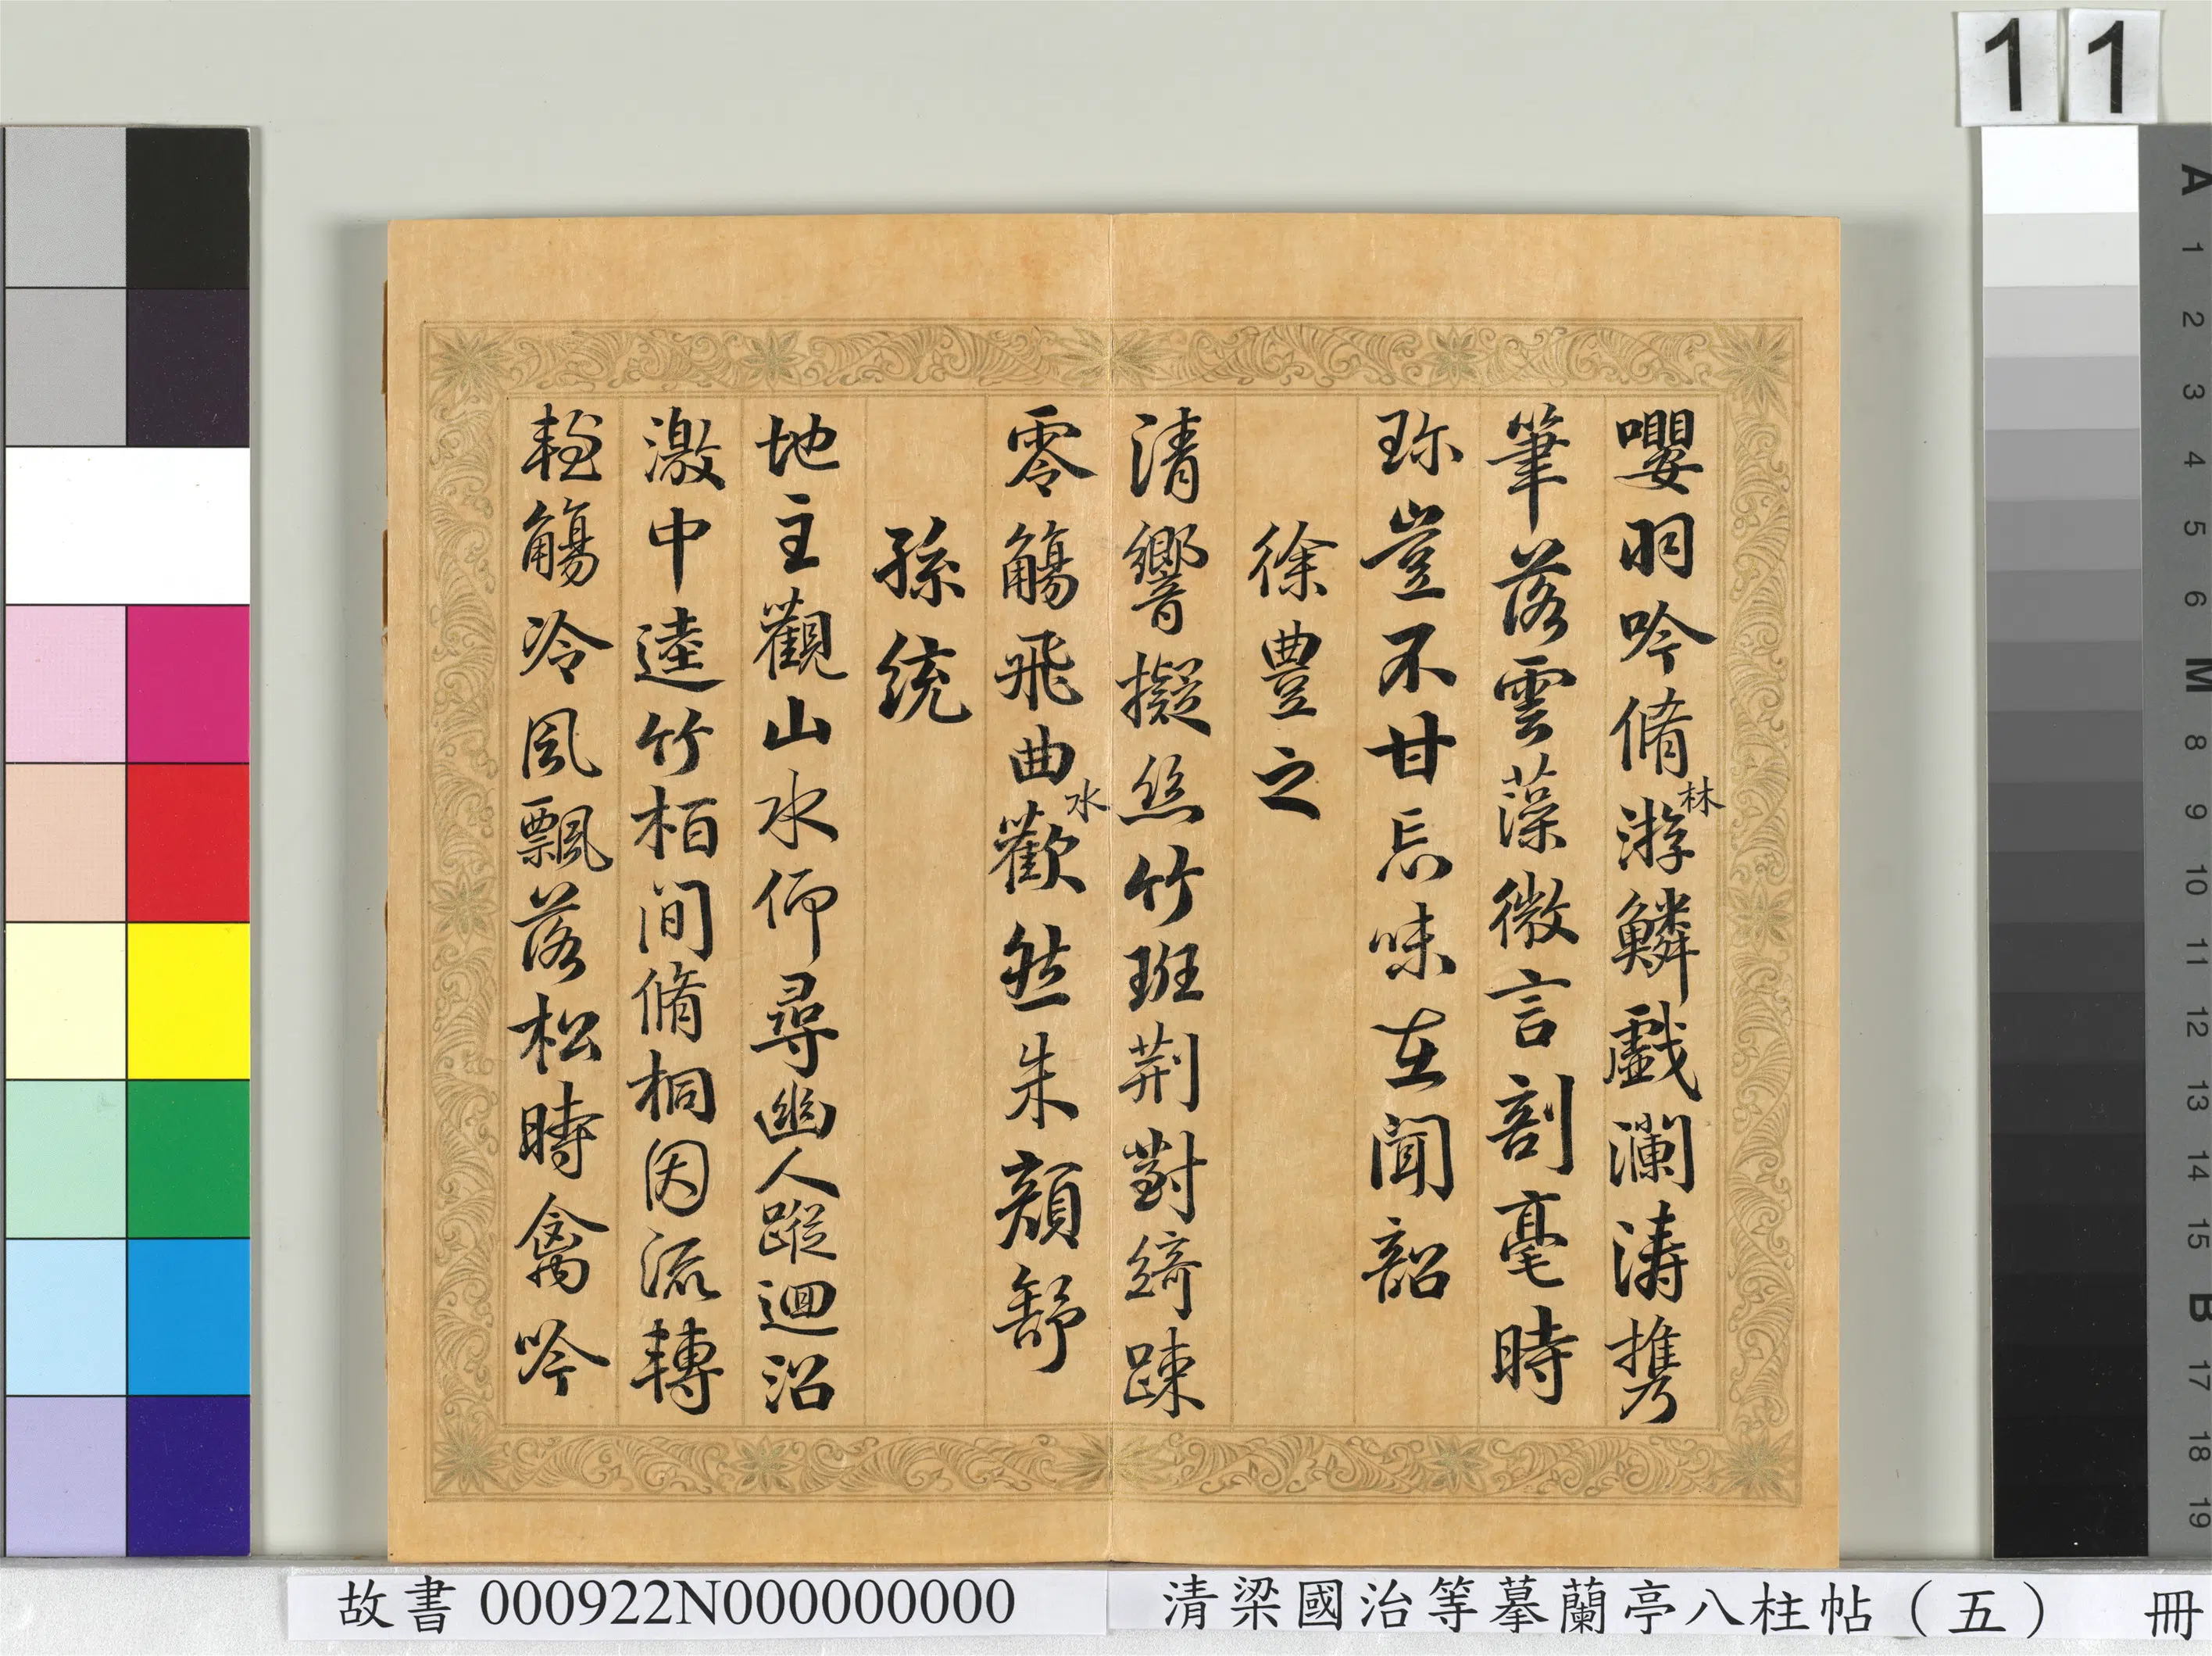 11
嚶羽吟脩林游鱗戲瀾濤攜
筆落雲藻微言剖毫時
珎豈不甘忘味在聞韶
徐豊之
清響擬絲竹班荆對綺踈
零觴飛曲水歡然朱顏舒
孫統
地主觀山水仰尋幽人蹤迴沼
激中逵竹栢間脩桐因流轉
輕觴冷風飄落松時禽吟
A 1 2 3 4 5 6 M 8 9 10 11 12 13 14 15 B 17 18 19
故書 000922N000000000
清梁國治等摹蘭亭八柱帖（五） 冊